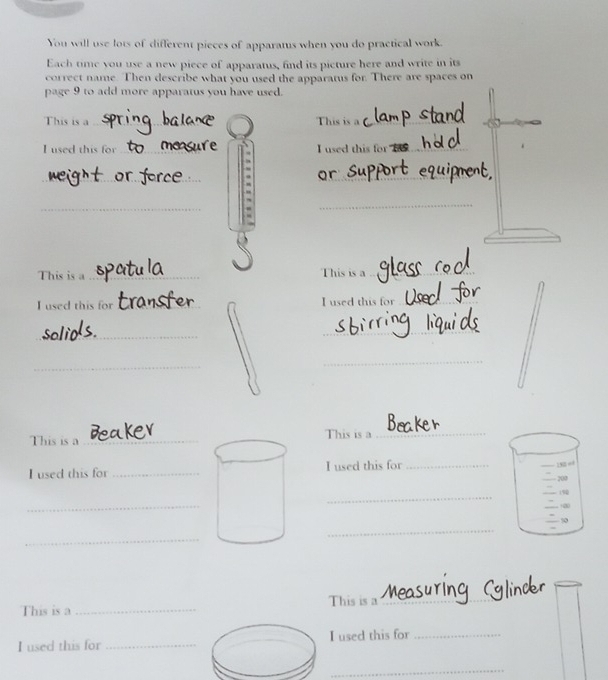 You will use lots of different pieces of apparatus when you do practical work.
Each time you use a new piece of apparatus, find its picture here and write in its
correct name. Then describe what you used the apparatus for. There are spaces on
page 9 to add more apparatus you have used.
This is a spring balance
I used this for to measure
weight or force.
This is a clamp stand
I used this for hold
or support equipment,
This is a spatula
I used this for transfer
solids.
This is a glass rod
I used this for Used for
stirring liquids
This is a Beaker
I used this for
This is a Beaker
I used this for
250 ml
200
150
100
50
This is a
I used this for
This is a Measuring Cylinder
I used this for